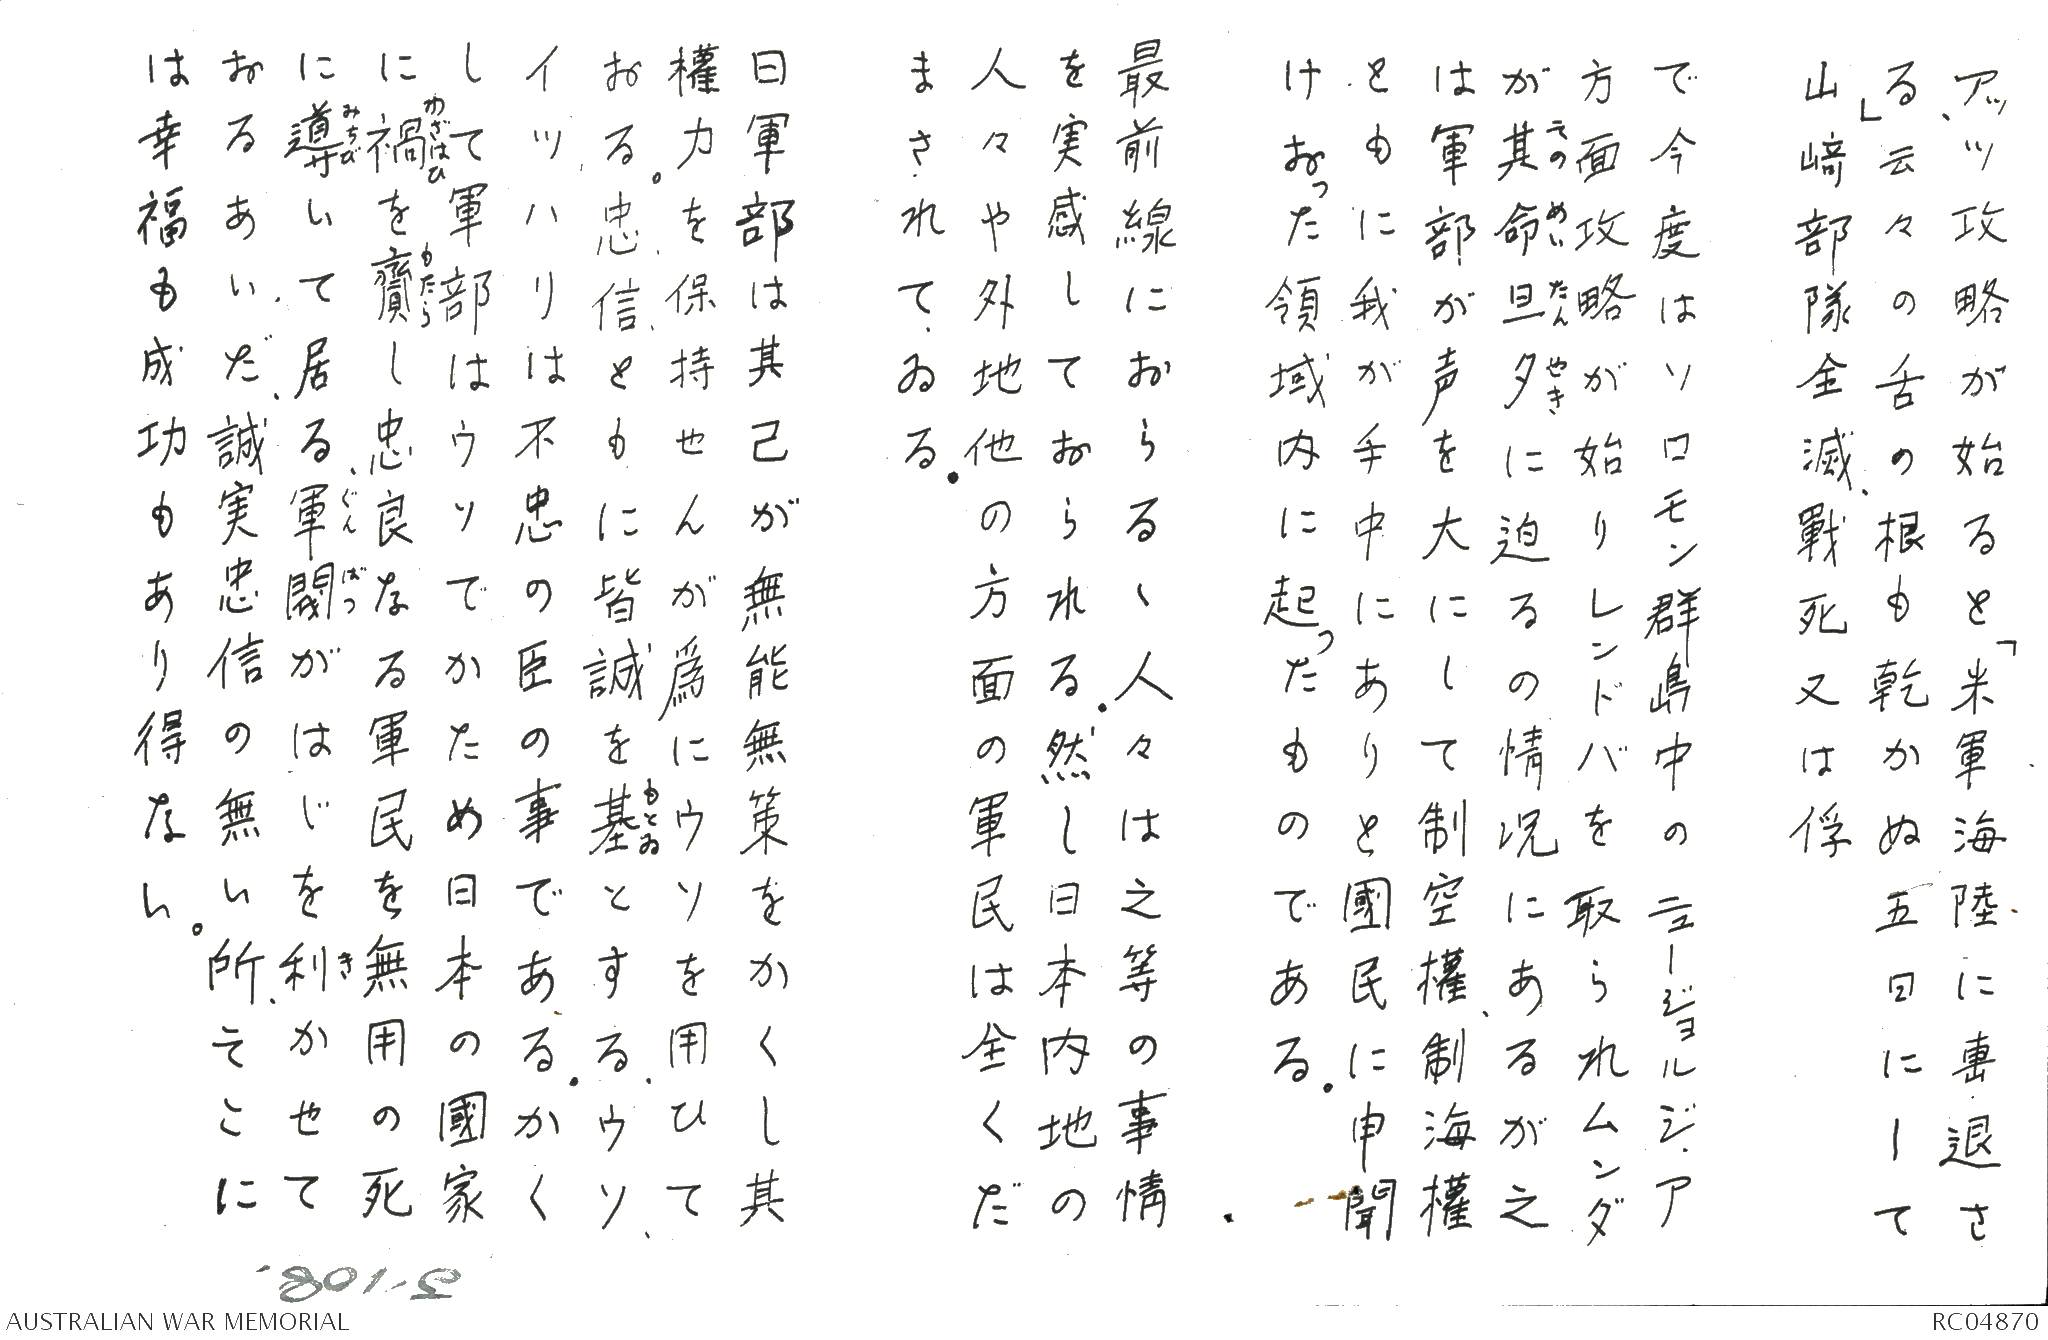 アッツ攻略が始ると「米軍海陸に専退さ
る」云々の舌の根も乾かぬ五日にして
山﨑部隊全滅、戰死又は俘
で今度はソロモン群島中のニュージョルジ.ア
方面攻略が始りレンドバを取られムンダ
が其命旦夕に迫るの情况にあるが之
その めい たん やき
は軍部が声を大にして制空權、制海權
ともに我が手中にありと國民に申聞
けおった領域内に起ったものである。
最前線におらるゝ人々は之等の事情
を実感しておられる。然し日本内地の
人々や外地他の方面の軍民は全くだ
まされてゐる。
日軍部は其己が無能無策をかくし其
權力を保持せんが爲にウソを用ひて
おる。忠信ともに皆誠を基とする。ウソ、
もとゐ
イツハリは不忠の臣の事である。かく
して軍部はウソでかため日本の國家
に禍を齎し忠良なる軍民を無用の死
わざはひ もたら
に導いて居る、軍閥がはじを利かせて
みちび ぐん ばつ き
おるあいだ、誠実忠信の無い所、そこに
は幸福も成功もあり得ない。
5-108
AUSTRALIAN WAR MEMORIAL
RC04870